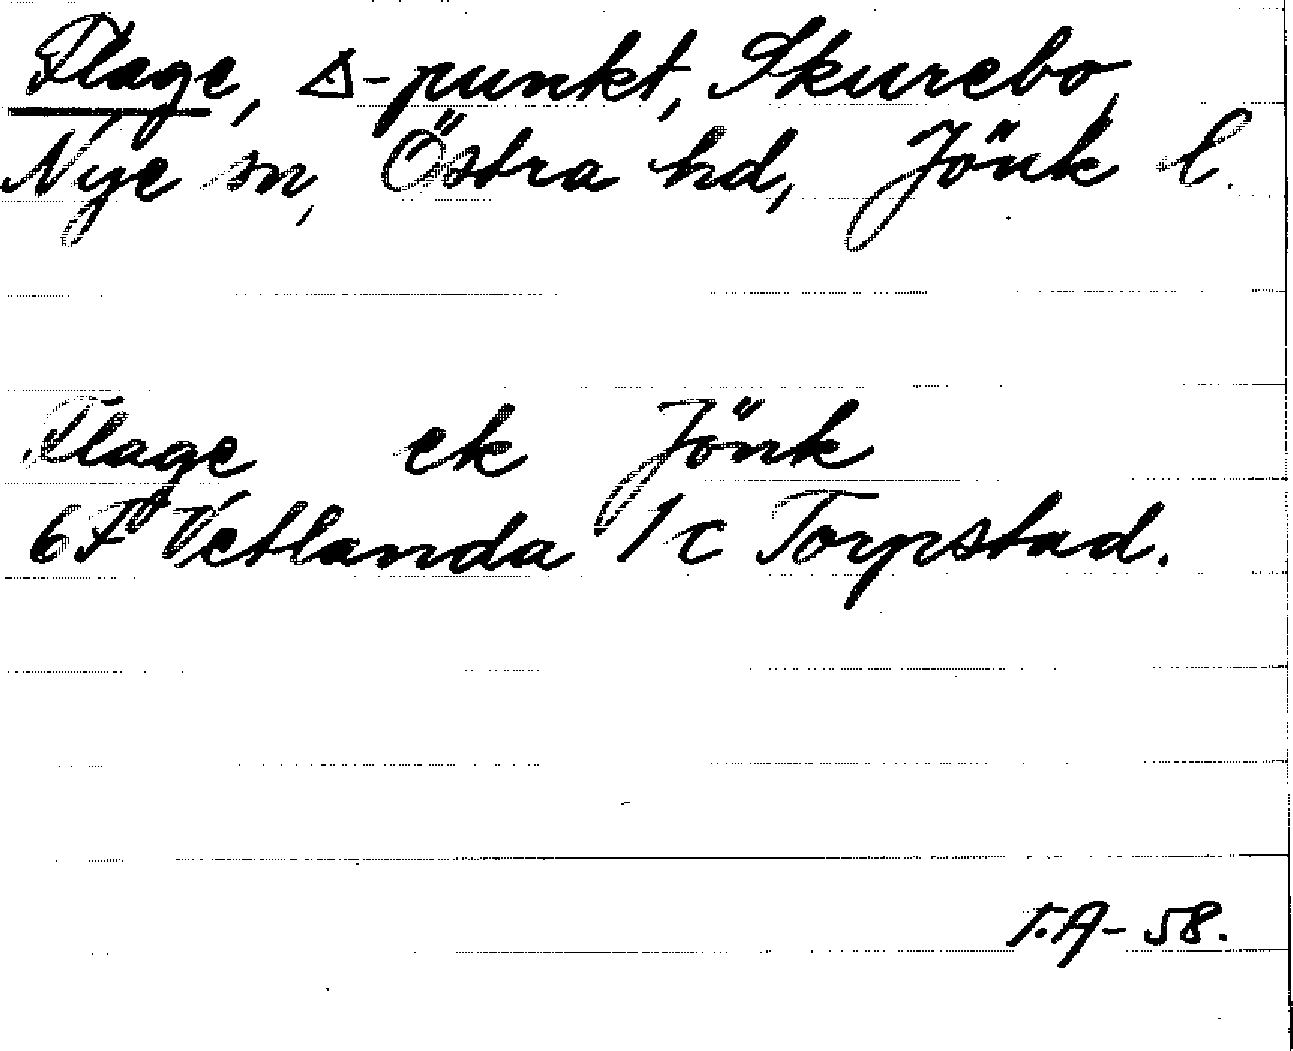 Flage, △-punkt, Skurebo,
Nye sn, Östra hd, Jönk l.
Flage ek Jönk
6F Vetlanda 1c Torpstad.
T.A-58.